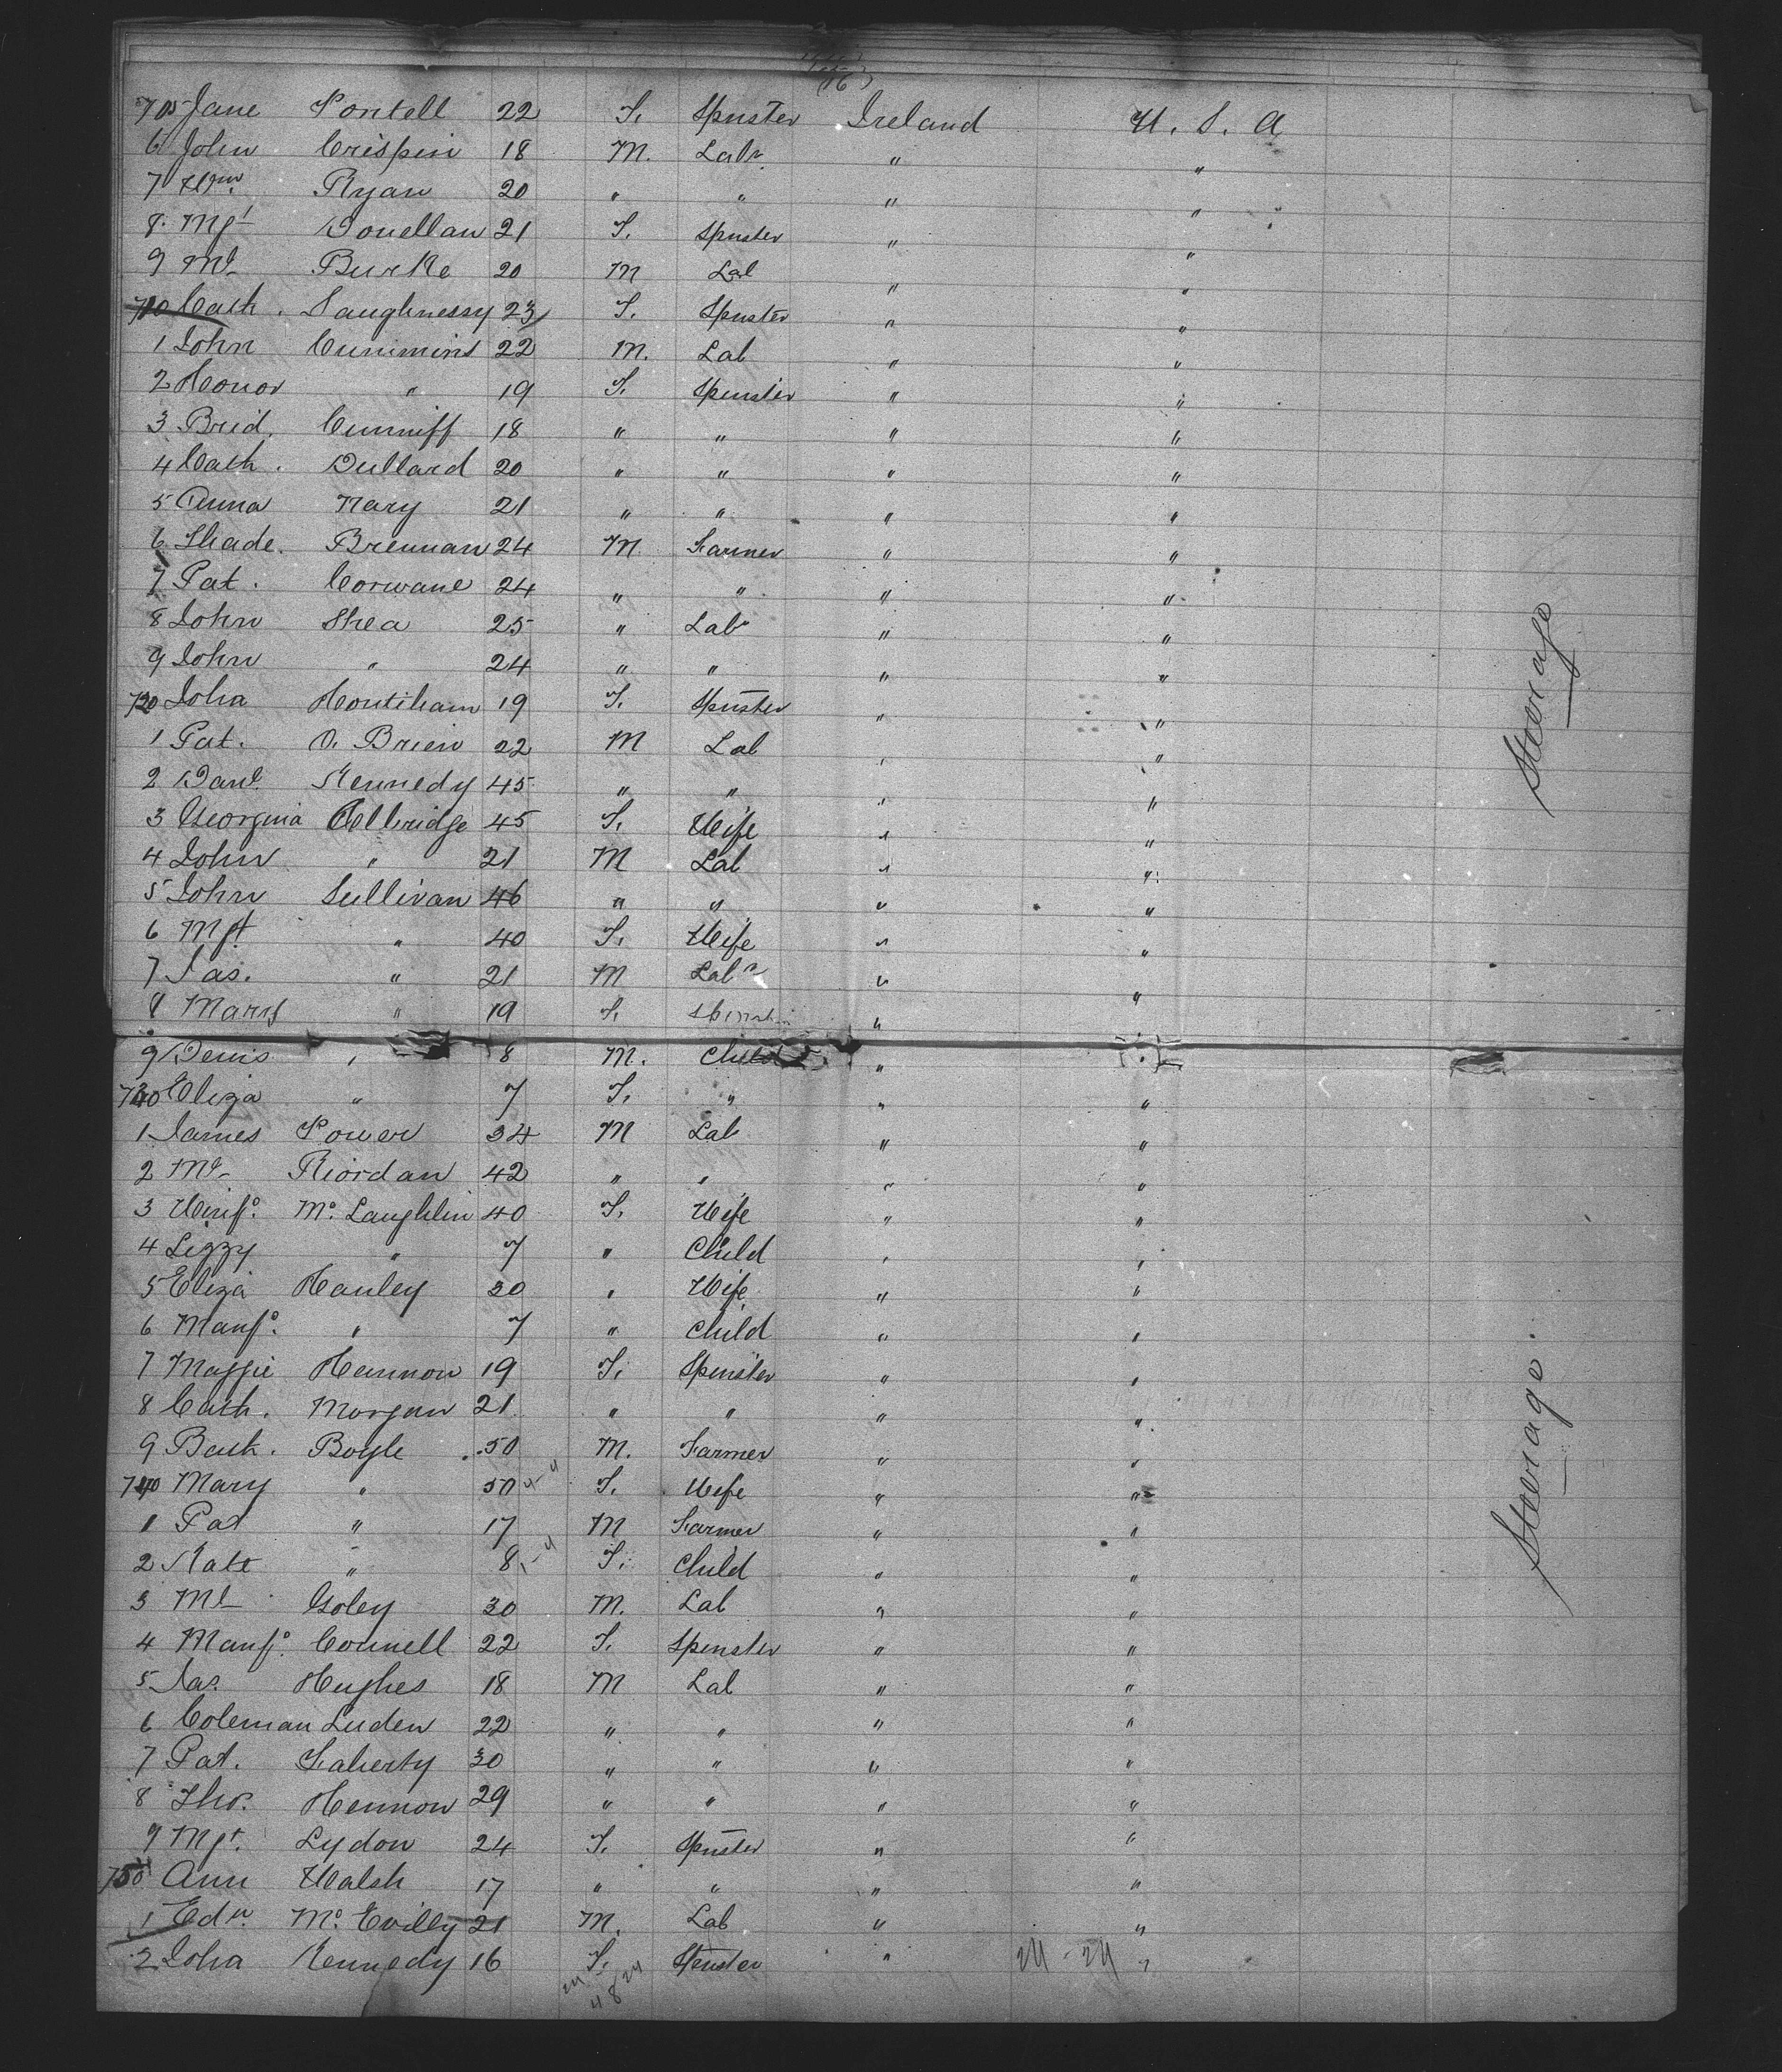 (16)
705 Jane Pontell 22 F. Spuster Ireland U. S. A
6 John Crispin 18 M. Labr " "
7 Wm. Ryan 20 " " " "
8. Mgt Donellan 21 F. Spuster " "
9 Ml Burke 20 M Lab " "
710 Cath. Saughnessy 23 F. Spuster " "
1 John Cummins 22 M. Lab " "
2 Honor " 19 F. Spinster " "
3 Brid. Cunniff 18 " " " "
4 Cath. Dullard 20 " " " "
5 Anna Nary 21 " " " "
6 Thade. Brennan 24 M Farmer " "
7 Pat. Corwane 24 " " " "
8 John Shea 25 " Labr " "
9 John " 24 " " " "
720 Joha Hontiham 19 F. Spuster " "
1 Pat. O. Brien 22 M Lab " "
2 Danl. Kennedy 45 " " " "
3 Georgina Elbridge 45 F. Wife " "
4 John " 21 M Lab " "
5 John Sullivan 46 " " " "
6 Mgt " 40 F. Wife " "
7 Jas. " 21 M Labr " "
8 Mary " 19 F. Spinster " "
9 Denis " 8 M. Child " "
730 Eliza " 7 F. " " "
1 James Power 34 M Lab " "
2 Ml Riordan 42 " " " "
3 Winfo. Mc. Laughlin 40 F. Wife " "
4 Lizzy " 7 " Child " "
5 Eliza Hanley 30 " Wife " "
6 Manfo. " 7 " Child " "
7 Maggie Hannon 19 F. Spinster " "
8 Cath. Morgan 21 " " " "
9 Bath. Boyle 50 M. Farmer " "
740 Mary " 50 F. Wife " "
1 Pat " 17 M Farmer " "
2 Kate " 8 F. Child " "
3 Ml Goley 30 M. Lab " "
4 Manfo. Connell 22 F. Spinster " "
5 Jas. Hughes 18 M Lab " "
6 Coleman Luden 22 " " " "
7 Pat. Faherty 30 " " " "
8 Thos. Hennon 29 " " " "
9 Mgt. Lydon 24 F. Spuster " "
750 Ann Walsh 17 " " " "
1 Edw. Mc. Evilly 21 M. Lab " "
2 Joha Kennedy 16 F. Spuster " 24 - 24 "
24 24
48
Steerage
Steerage.